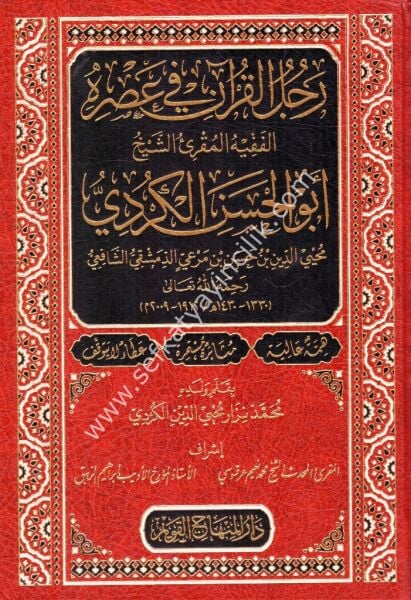 رَجُلُ القُرآنِ فِي عَصْرِهِ
الفَقِيهُ المُقْرِئُ الشَّيْخُ
أبو الحسن الكُرْدِيُّ
مُحْيِي الدِّينِ بنُ حَسَنِ بنِ مَرْعِي الدِّمَشْقِيُّ الشَّافِعِيُّ
رَحِمَهُ اللهُ تَعَالَى
(١٣٣٠-١٤٣٠هـ / ١٩١٢-٢٠٠٩م)
هِمَّةٌ عَالِيَةٌ مُثَابَرَةٌ مُسْتَمِرَّةٌ عَطَاءٌ لَا يَتَوَقَّفُ
بِقَلَمِ وَلَدِهِ
مُحَمَّد نِزَار مُحْيِي الدِّين الكُرْدِي
إشراف
المقرئ المحدث الشيخ محمد نعيم عرقسوسي الأستاذ المؤرخ الأديب إبراهيم الزيبق
دار المنهاج القويم
www.serkatyayincilik.com